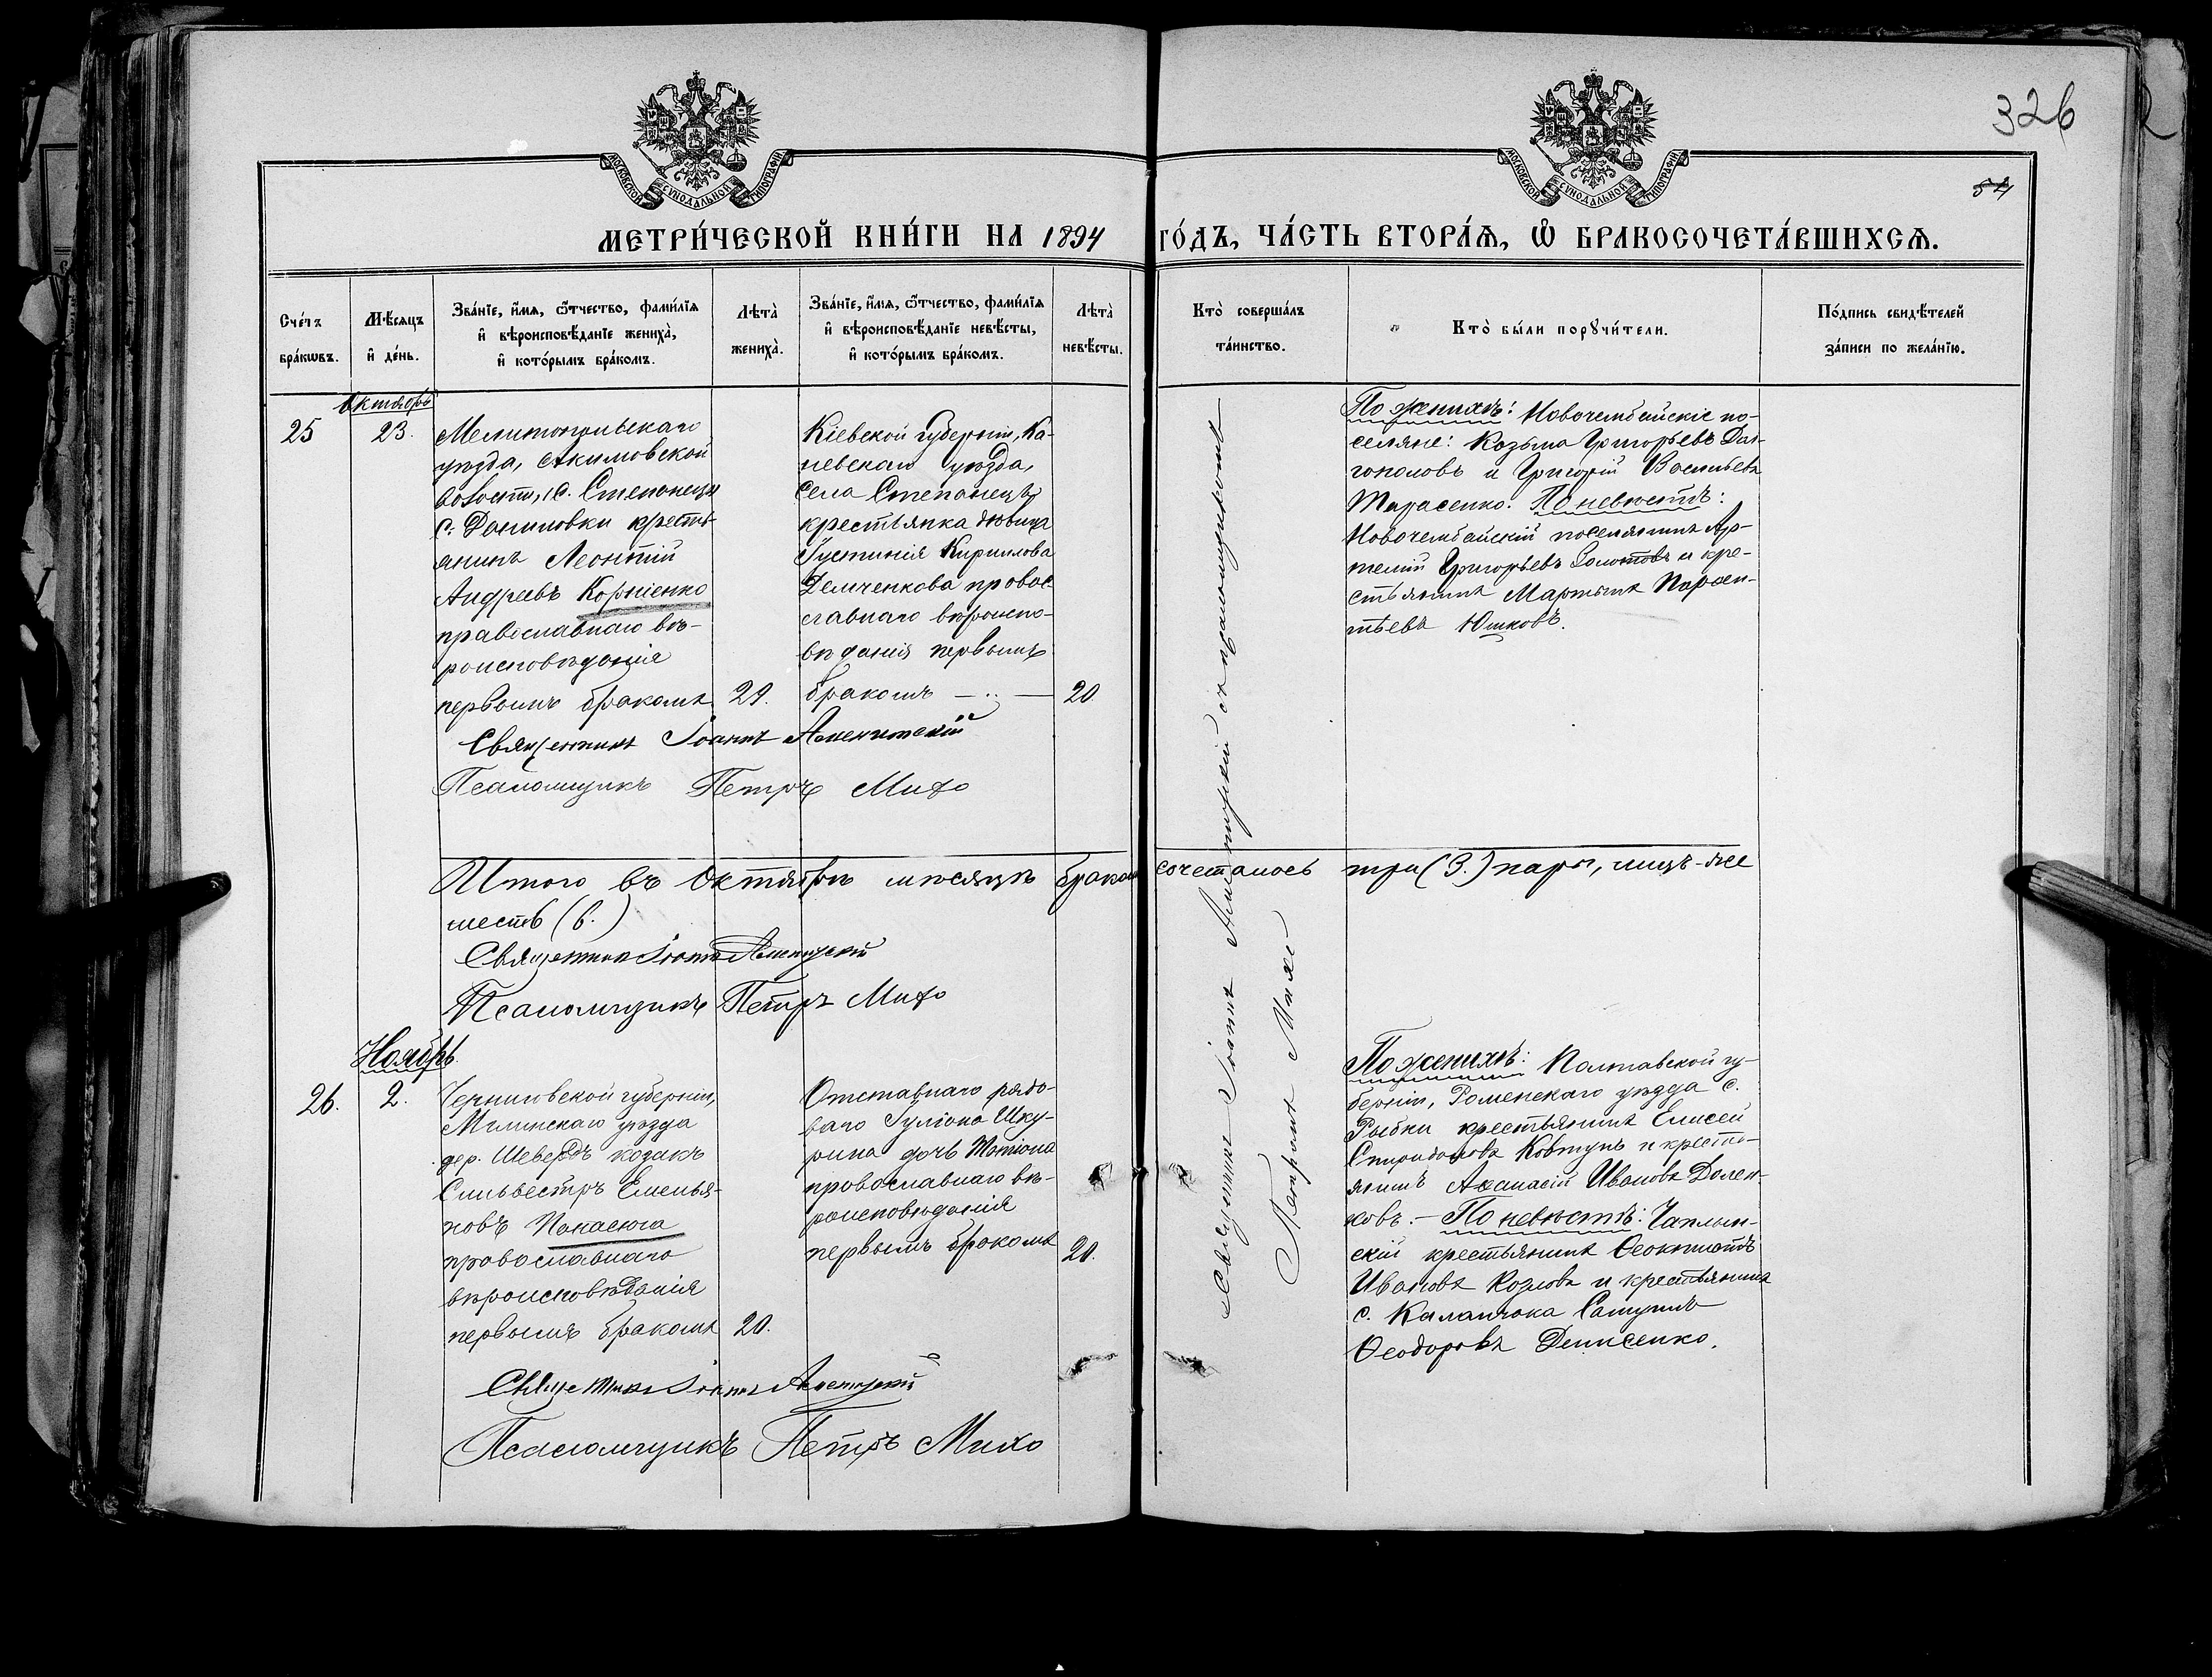 326
54
МОСКОВСКОЙ СѴНОДАЛЬНОЙ ТИПОГРАФІИ
МОСКОВСКОЙ СѴНОДАЛЬНОЙ ТИПОГРАФІИ
МЕТРИ́ЧЕСКОЙ КНИ́ГИ НА 1894 ГО́ДЪ, ЧА́СТЬ ВТОРА́Я, Ѽ БРАКОСОЧЕТА́ВШИХСЯ.
Сче́тъ бра́кѡвъ.
Мѣ́сяцъ и҆ де́нь.
Зва́нїе, и҆́мѧ, ѻ҆́тчество, фами́лїѧ и҆ вѣроисповѣ́данїе жениха̀, и҆ кото́рымъ бра́комъ.
Лѣта̀ жениха̀.
Зва́нїе, и҆́мѧ, ѻ҆́тчество, фами́лїѧ и҆ вѣроисповѣ́данїе невѣ́сты, и҆ кото́рымъ бра́комъ.
Лѣта̀ невѣ́сты.
Кто̀ соверша́лъ та́инство.
Кто̀ бы́ли порꙋчи́тели.
По́дпись свидѣ́телей за́писи по жела́нїю.
Октябрь
25
23.
Мелитопольскаго
уѣзда, Акимовской
волости, с.
с. Даниловки кресть-
янинъ Леонтій
Андреевъ Корніенко
православнаго вѣ-
роисповѣданія
первымъ бракомъ
29.
Кіевской губерніи, Ка-
невскаго уѣзда,
села Степанецъ,
крестьянка дѣвица
Іустинія Кириллова
Демченкова правос-
славнаго вѣроиспо-
вѣданія первымъ
бракомъ
20.
Священникъ Іоаннъ
Псаломщикъ Петръ Михо
По женихѣ: Новочембайскіе по-
селяне: Козьма Григорьевъ Дол-
гополовъ и Григорій Васильевъ
Тарасенко. По невѣстѣ:
Новочембайскій поселянинъ Ар-
темій Григорьевъ Золотовъ и кре-
стьянинъ Мартынъ
Юшковъ.
Священникъ Іоаннъ съ псаломщикомъ
Петромъ Михо
Итого въ Октябрѣ мѣсяцѣ бракомъ сочеталось три (3.) пары, лицъ-же
шесть (6.)
Священникъ Іоаннъ
Псаломщикъ Петръ Михо
Ноябрь.
26.
2.
Черниговской губерніи,
Мглинскаго уѣзда
дер. Шевердъ козакъ
Сильвестръ Емелья-
новъ Панасюга
православнаго
вѣроисповѣданія
первымъ бракомъ
20.
Отставнаго рядо-
ваго Іуліана Шку-
рина дочь Татіана
православнаго вѣ-
роисповѣданія
первымъ бракомъ
20.
Священникъ Іоаннъ
Псаломщикъ Петръ Михо
По женихѣ: Полтавской гу-
берніи, Роменскаго уѣзда с.
Рыбки крестьянинъ Елисей
Спиридоновъ Ковтунъ и кресть-
янинъ Аѳанасій Ивановъ Долен-
ковъ. — По невѣстѣ: Чаплын-
скій крестьянинъ Ѳеоктистъ
Ивановъ Козловъ и крестьянинъ
с. Каланчака Самуилъ
Ѳеодоровъ Денисенко.